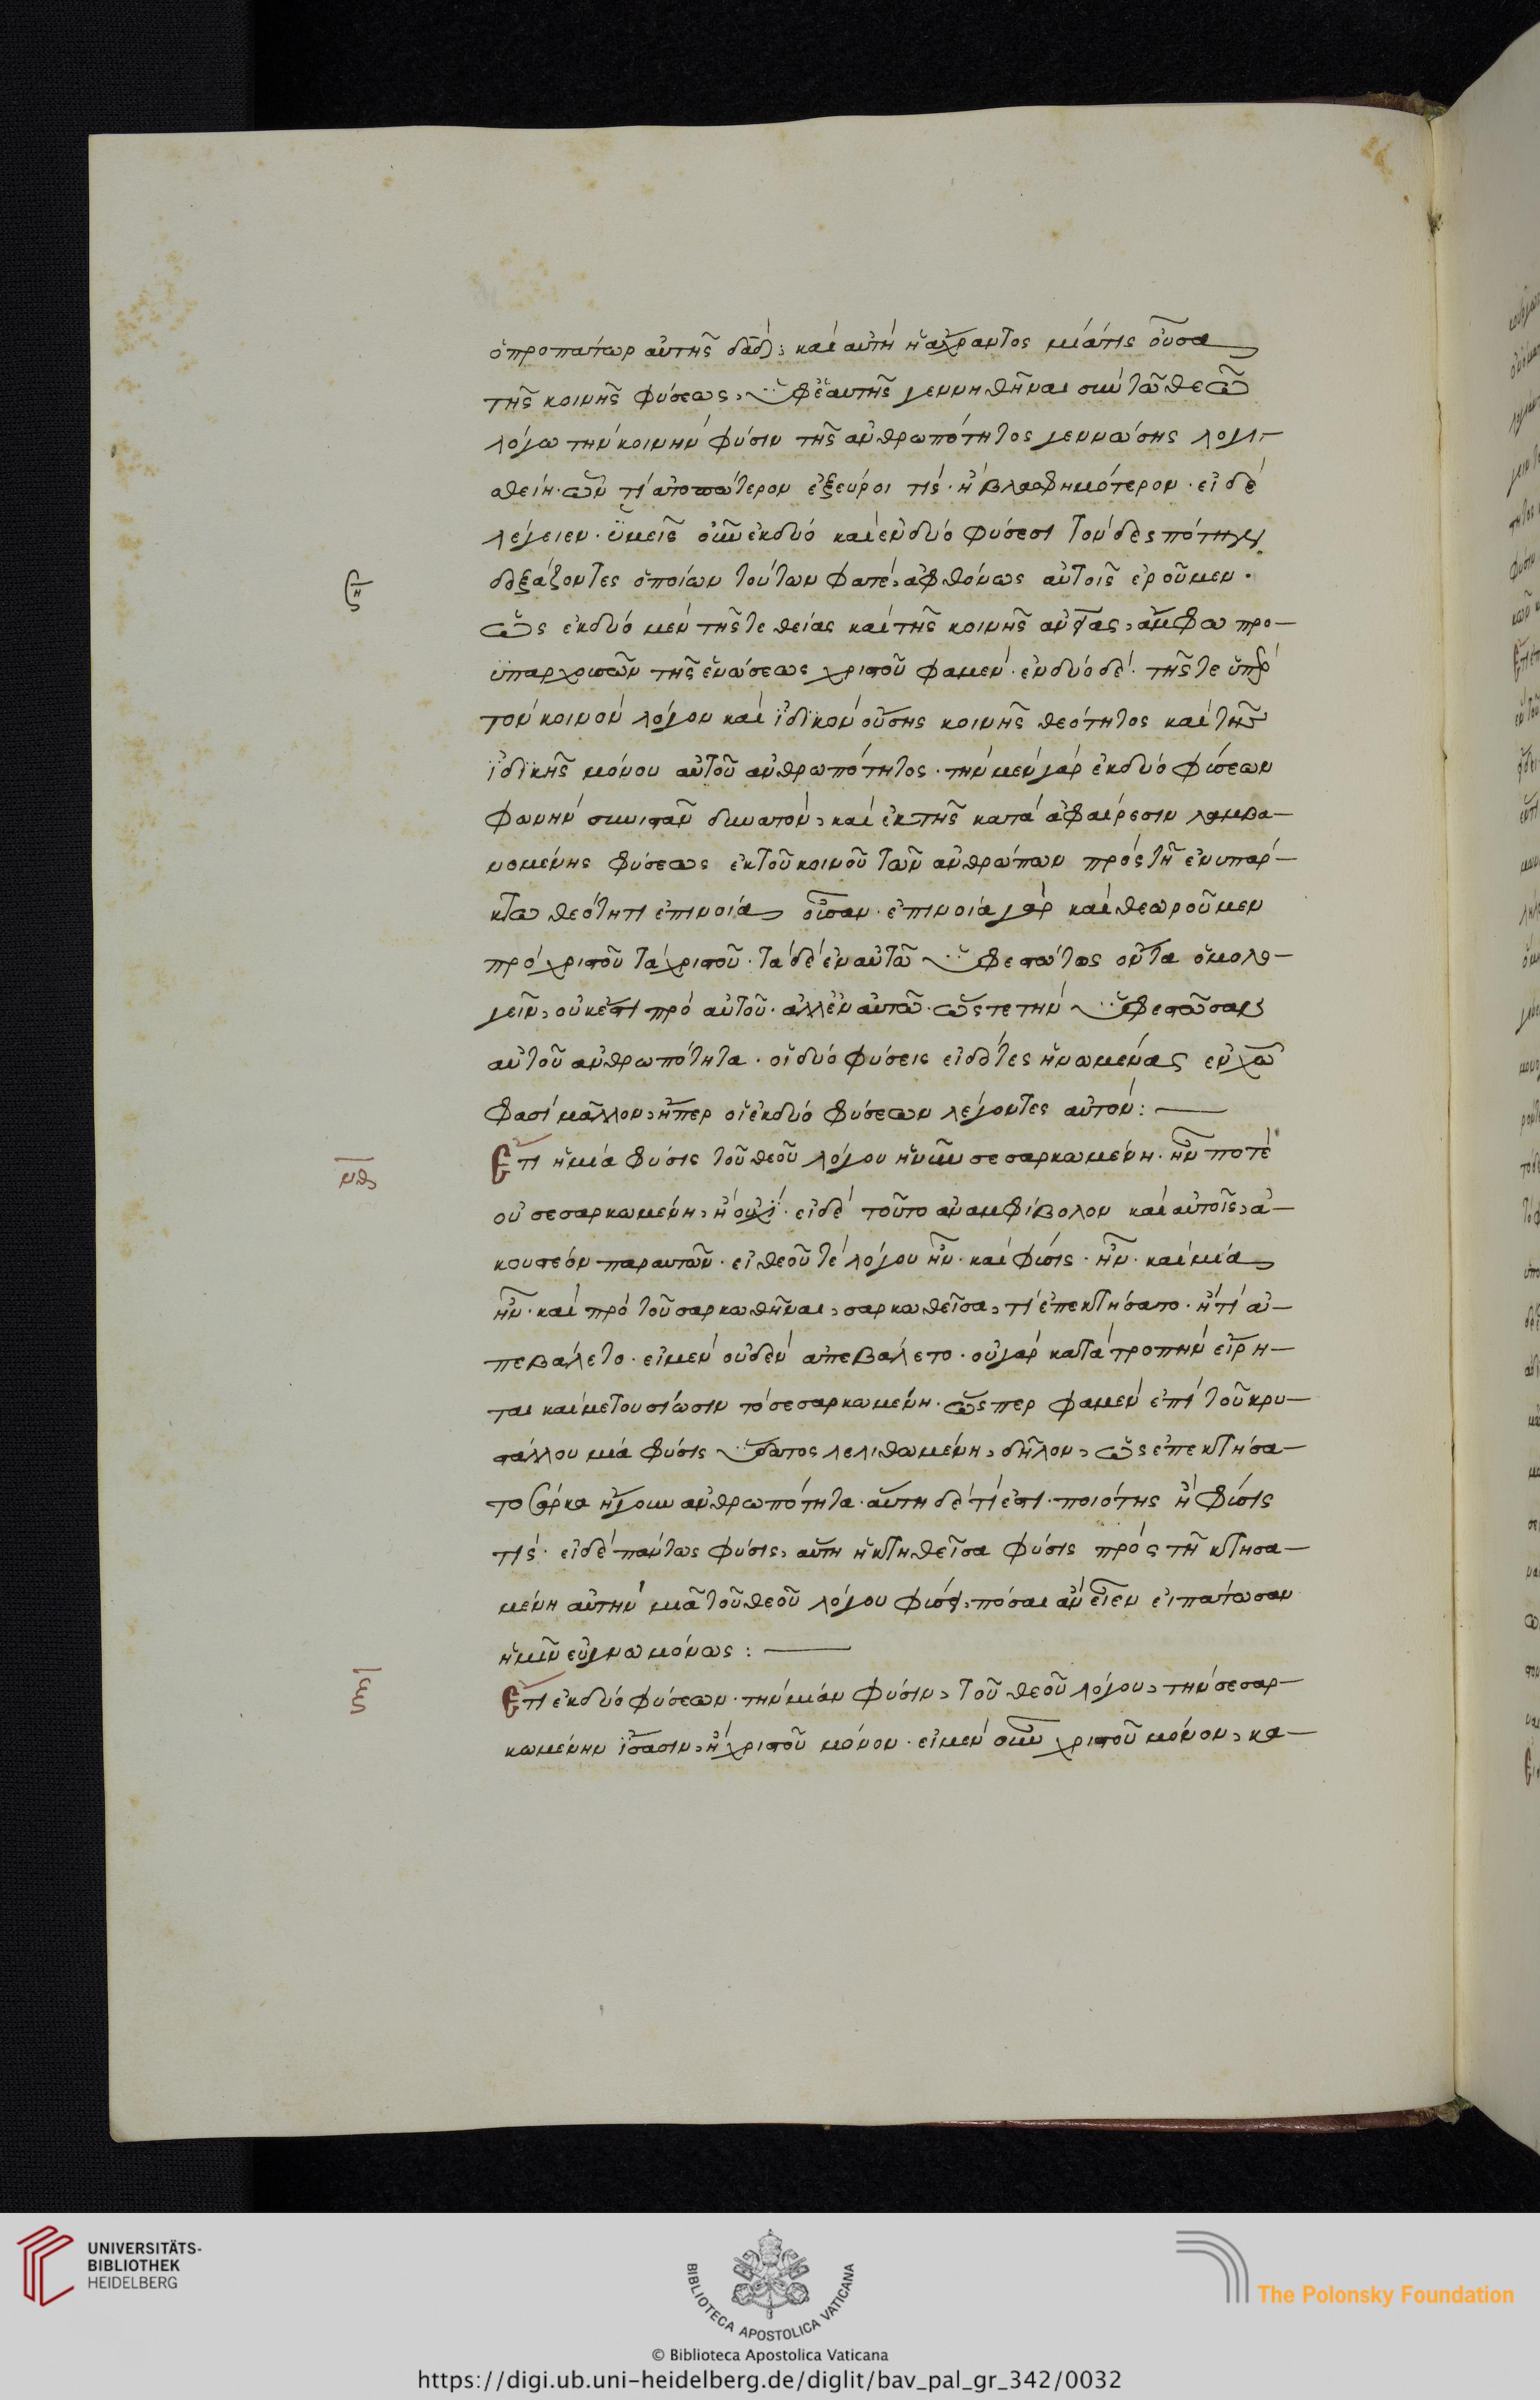 ὁ προπάτωρ αὐτῆς δᾱδ· καὶ αὐτὴ ἡ ἄχραντος μία τις οὖσα
τῆς κοινῆς φύσεως, ὑφ' ἑαυτῆς γεννηθῆναι σὺν τῶ θεῶ
λόγω τὴν κοινὴν φύσιν τῆς ἀνθρωπότητος γεννώσης λογι-
σθείη· ὧν τί ἀτοπώτερον ἐξεύροι τίς· ἢ βλασφημότερον· εἰ δὲ
λέγειεν· ὑμεῖς οὖν ἐκ δύο καὶ ἐν δύο φύσεσι τὸν δεσπότην
δοξάζοντες ὁποίων τούτων φατέ, ἀφθόνως αὐτοῖς ἐροῦμεν·
ὡς ἐκ δύο μὲν τῆς τε θείας καὶ τῆς κοινῆς ἀνίας, ἄμφω προ-
ϋπαρχουσῶν τῆς ἑνώσεως χριστοῦ φαμέν· ἐν δύο δὲ· τῆς τε ὑπὲρ
τὸν κοινὸν λόγον καὶ ἰδικὸν οὔσης κοινῆς θεότητος καὶ τῆς
ἰδικῆς μόνου αὐτοῦ ἀνθρωπότητος· τὴν μὲν γὰρ ἐκ δύο φύσεων
φωνὴν συνιστᾶν δυνατόν, καὶ ἐκ τῆς κατὰ ἀφαίρεσιν λαμβα-
νομένης φύσεως ἐκ τοῦ κοινοῦ τῶν ἀνθρώπων πρὸς τῆ ἐνυπάρ-
κτω θεότητι ἐπινοία οὖσαν· ἐπινοία γὰρ καὶ θεωροῦμεν
πρὸ χριστοῦ τὰ χριστοῦ· τὰ δὲ ἐν αὐτῶ ὑφεστώτως ὄντα ὁμολο-
γεῖν, οὐκέτι πρὸ αὐτοῦ· ἀλλ' ἐν αὐτῶ· ὥστε τὴν ὑφεστῶσαν
αὐτοῦ ἀνθρωπότητα· οἱ δύο φύσεις εἰδότες ἡνωμένας ἐν χῶ
φασὶ μᾶλλον, ἥπερ οἱ ἐκ δύο φύσεων λέγοντες αὐτόν:
νθ Ἔτι ἡ μία φύσις τοῦ θεοῦ λόγου ἡ νῦν σεσαρκωμένη· ἦν ποτὲ
οὐ σεσαρκωμένη, ἢ οὐχί· εἰ δὲ τοῦτο ἀναμφίβολον καὶ αὐτοῖς, ἀ-
κουστέον παρ αὐτῶν· εἰ θεοῦ τὲ λόγου ἦν· καὶ φύσις· ἦν· καὶ μία
ἦν· καὶ πρὸ τοῦ σαρκωθῆναι, σαρκωθεῖσα, τί ἐπεκτήσατο· ἢ τί ἀ-
πεβάλετο· εἰ μὲν οὐδὲν ἀπεβάλετο· οὐ γὰρ κατὰ τροπὴν εἴρη-
ται καὶ μετουσίωσιν τὸ σεσαρκωμένη· ὥσπερ φαμὲν ἐπὶ τοῦ κρυ-
στάλλου μία φύσις ὕδατος λελιθωμένη, δῆλον, ὡς ἐπεκτήσα-
το σάρκα ἤγουν ἀνθρωπότητα· αὕτη δὲ τί ἐστι· ποιότης ἢ φύσις
τίς· εἰ δὲ πάντως φύσις, αὕτη ἡ κτηθεῖσα φύσις πρὸς τῆ κτησα-
μένη αὐτὴν μιᾶ τοῦ θεοῦ λόγου φύσει, πόσαι ἂν εἶεν εἰπάτωσαν
ἡμῖν εὐγνωμόνως:
ξ Ἔτι ἐκ δύο φύσεων· τὴν μίαν φύσιν, τοῦ θεοῦ λόγου, τὴν σεσαρ-
κωμένην ἴσασιν, ἢ χριστοῦ μόνον· εἰ μὲν οὖν χριστοῦ μόνον, κα-
UNIVERSITÄTS-
BIBLIOTHEK
HEIDELBERG
BIBLIOTECA APOSTOLICA VATICANA
The Polonsky Foundation
© Biblioteca Apostolica Vaticana
https://digi.ub.uni-heidelberg.de/diglit/bav_pal_gr_342/0032